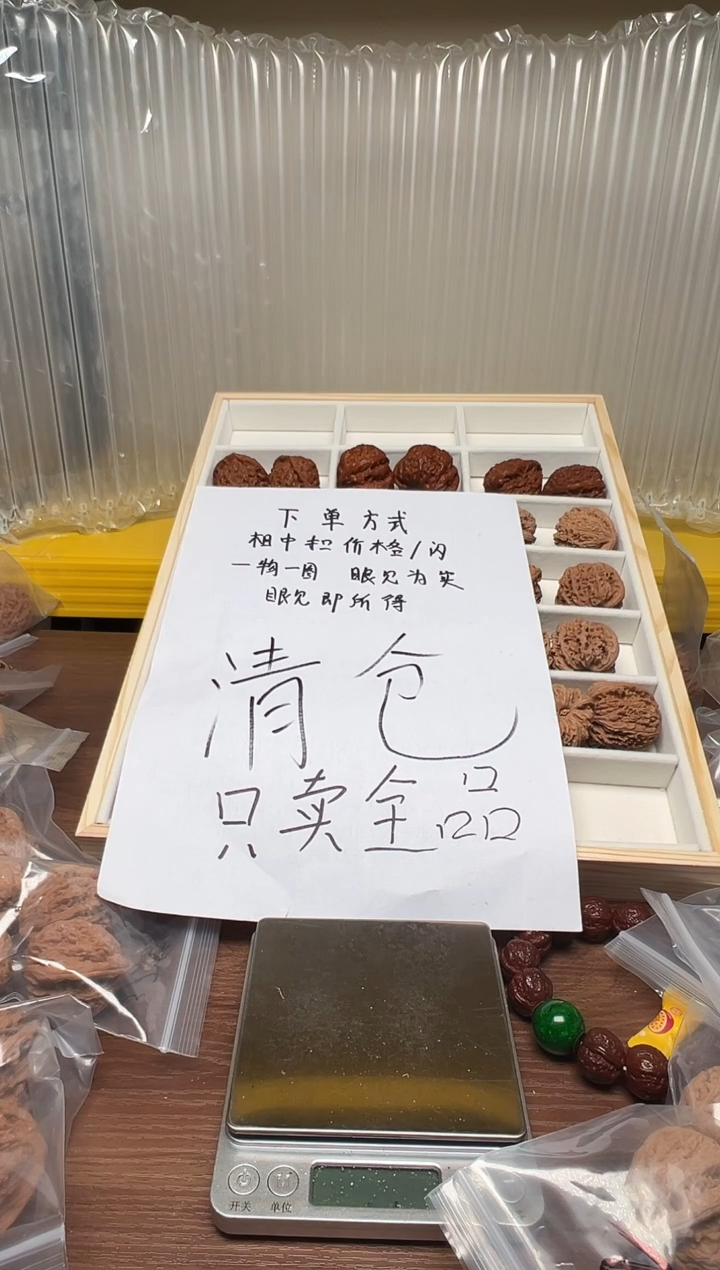 下单方式
相中扣价格/闪
一物一图 眼见为实
眼见即所得
清仓
只卖全品
开关 单位